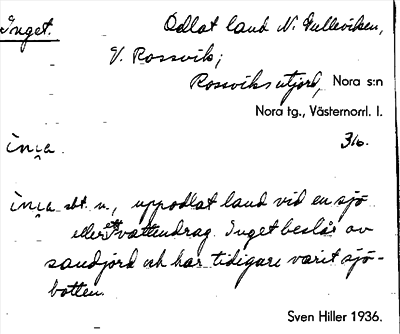 Inget. Odlat land N. Gulleviken,
V. Rossvik;
Rossviks utjord, Nora s:n
Nora tg., Västernorrl. l.
ìn̯a. 3/6.
ìn̯a sbt. n., uppodlat land vid en sjö
eller ett vattendrag. Inget består av
sandjord och har tidigare varit sjö-
botten.
Sven Hiller 1936.